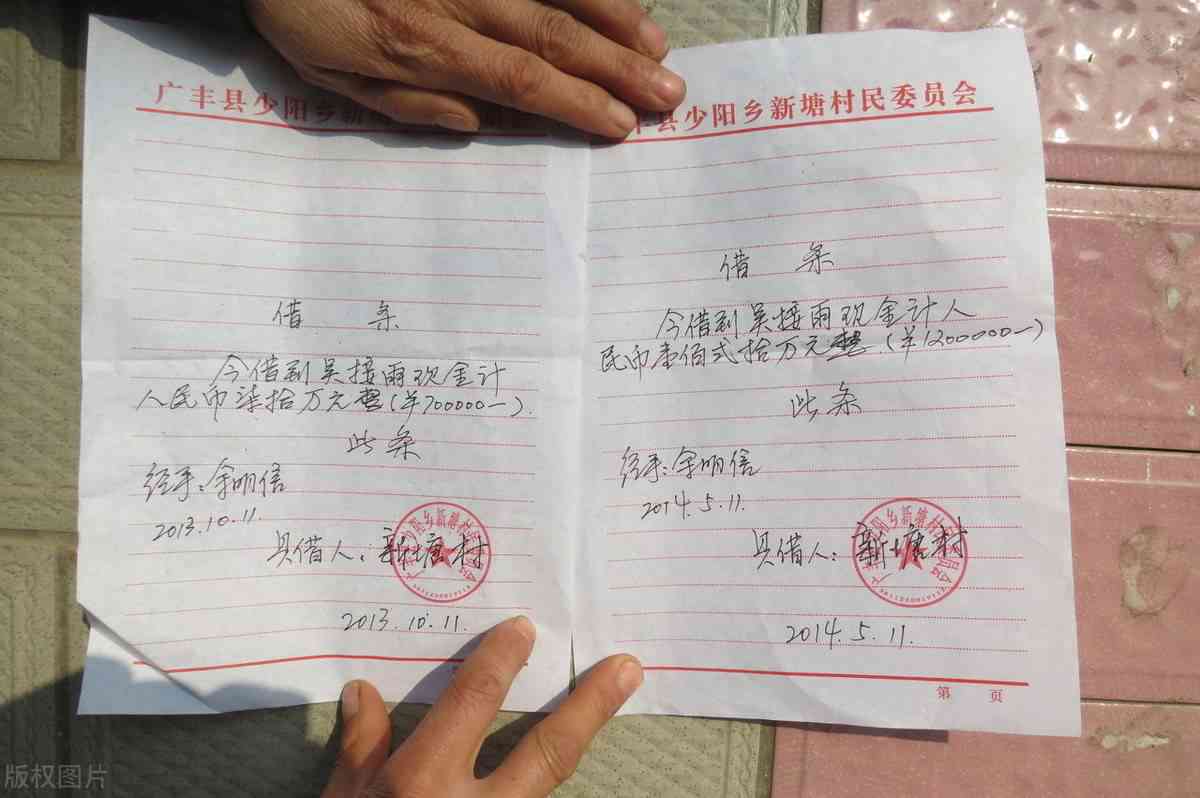 广丰县少阳乡新
借 条
今借到吴接雨现金计
人民币柒拾万元整(羊700000一).
此条
经手:余明信
2013.10.11.
具借人:新塘村
2013.10.11.
丰县少阳乡新塘村民委员会
借 条
今借到吴接雨现金计人
民币壹佰式拾万元整(羊1200000一)
此条
经手:余明信
2014.5.11.
具借人:新塘村
2014.5.11.
第 页
版权图片